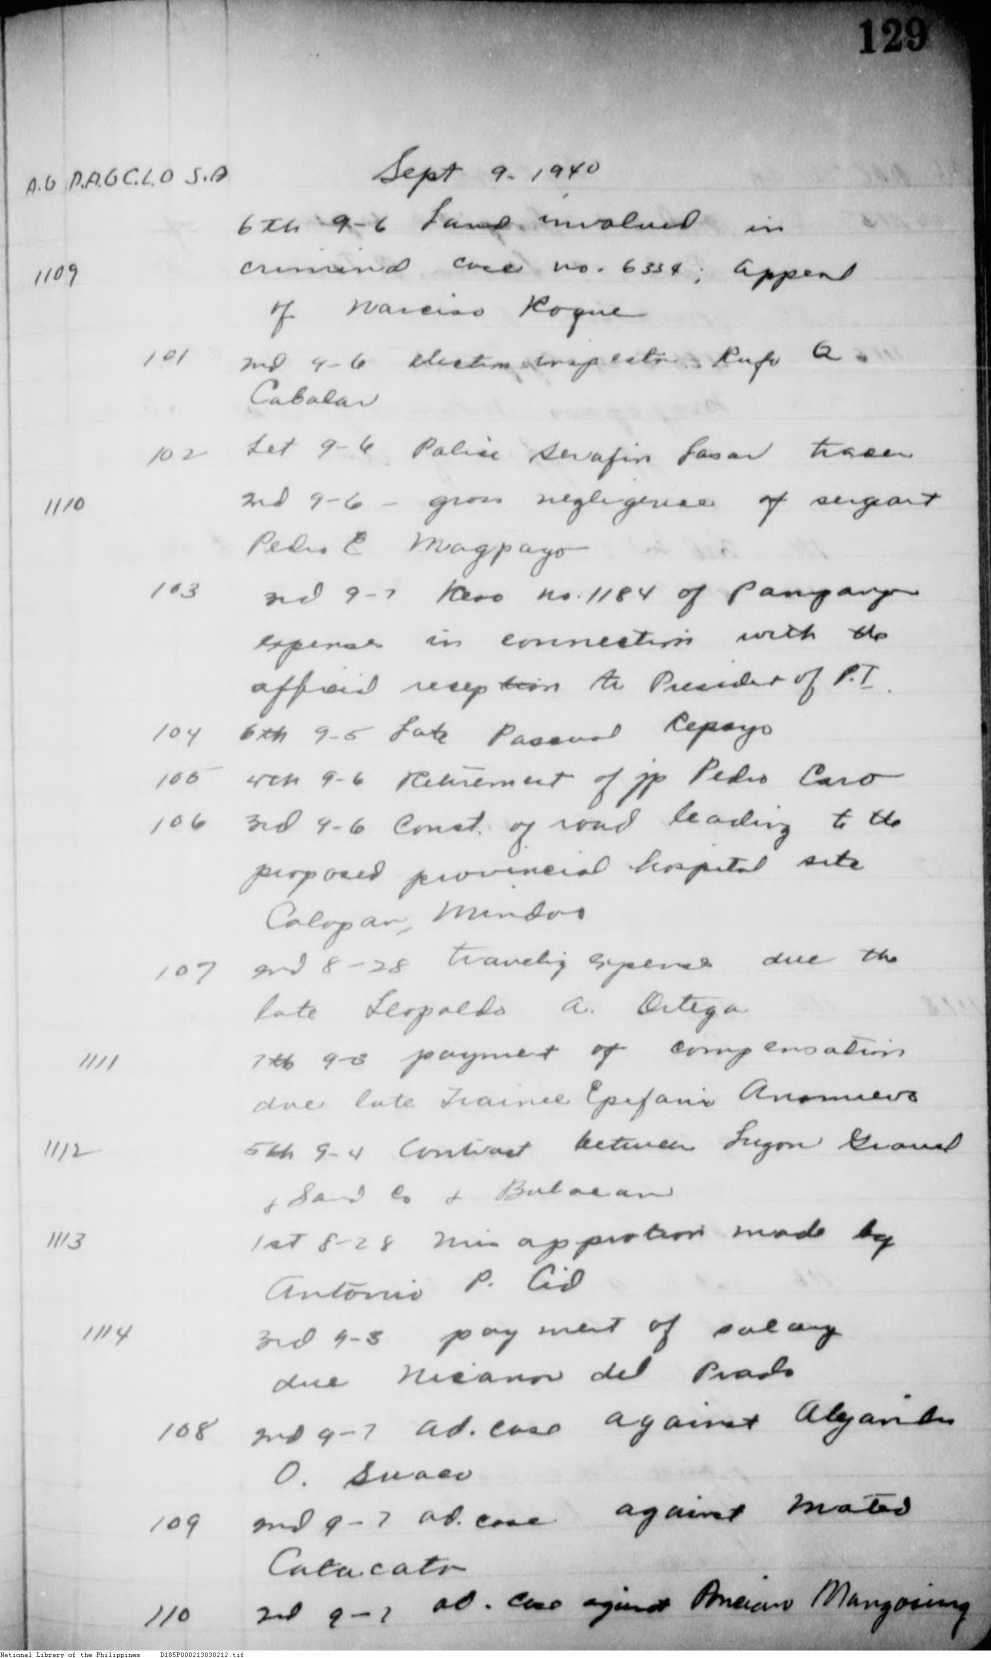 129
A.G D.A.G C.L.O S.A Sept 9. 1940
6th 9-6 Land involved in
1109 criminal case no. 6334; appeal
of Narciso Roque
101 2nd 9-6 election inspector Rufo A.
Cabalar
102 1st 9-6 Police Serafin
1110 2nd 9-6 - gross negligence of sergeant
Pedro E Magpayo
103 2nd 9-7 Reso no. 1184 of Pampanga
expenses in connection with the
official reception to President of P.I.
104 6th 9-5 Late Pascual Repayo
105 4th 9-6 Retirement of jp Pedro Caro
106 3rd 9-6 Const. of road leading to the
proposed provincial hospital site
Calapan, Mindoro
107 2nd 8-28 traveling expense due the
late Leopoldo A. Ortega
1111 7th 9-3 payment of compensation
due late Trainee Epifanio Anonuevo
1112 5th 9-4 Contract between Luzon Gravel
& Sand Co & Bulacan
1113 1st 8-28 made by
Antonio P. Cid
1114 3rd 9-3 payment of salary
due Nicanor del Prado
108 2nd 9-7 ad. case against Alejandro
O. Suaco
109 2nd 9-7 ad. case against Mateo
Catacato
110 2nd 9-7 ad. case against Mangosing
National Library of the Philippines D185P000213030212.tif